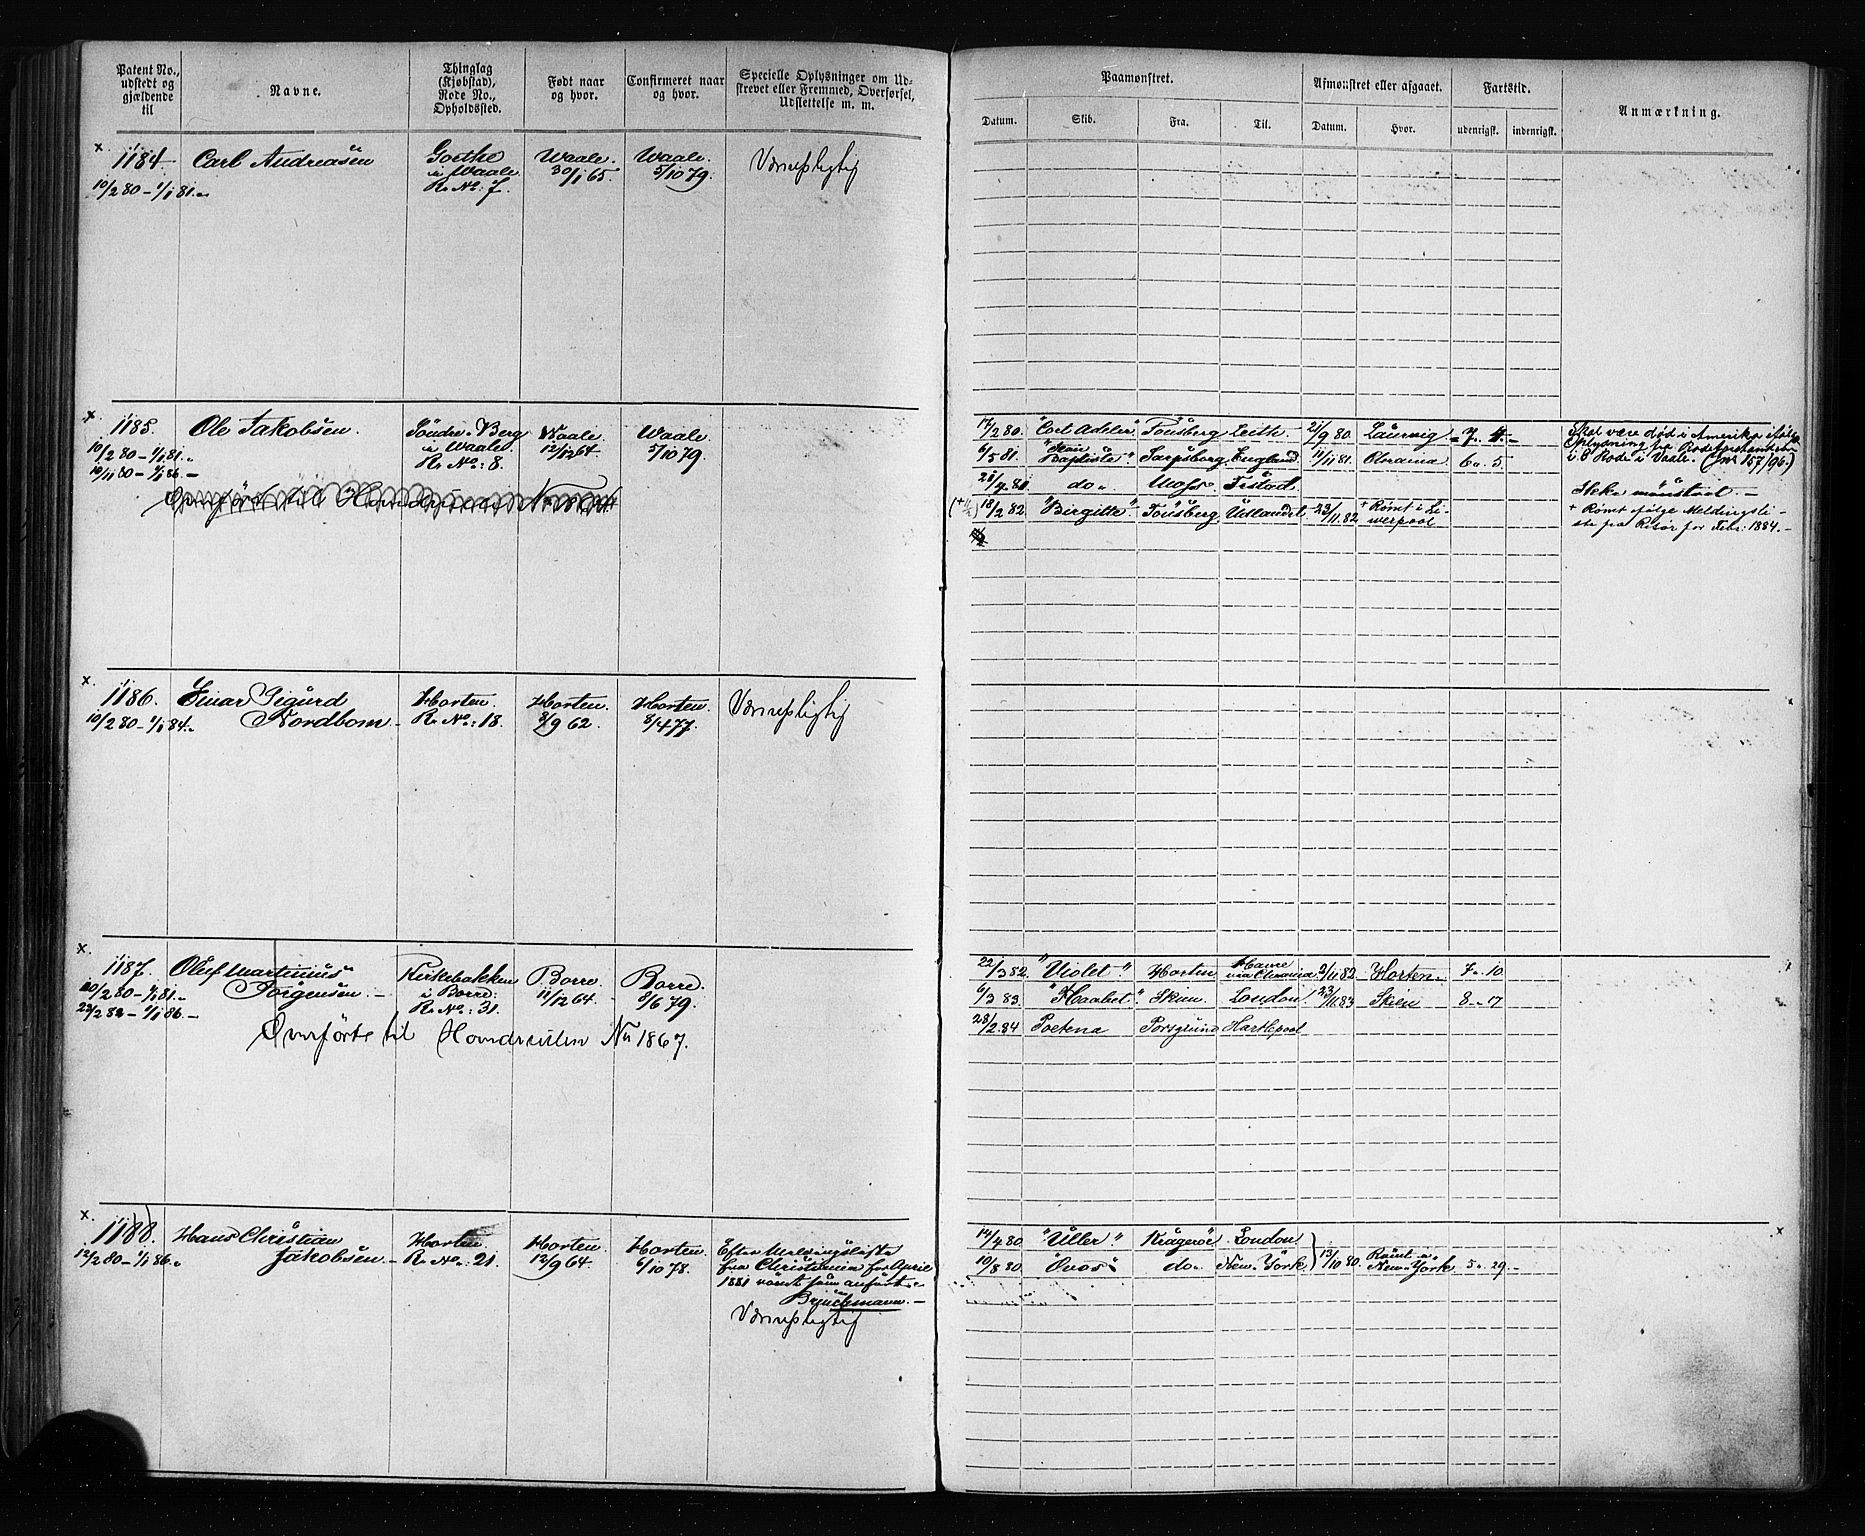 Patent No., udstedt og gjældende til
Navne.
Thinglag (Kjøbstad), Rode No., Opholdssted.
Født naar og hvor.
Confirmeret naar og hvor.
Specielle Oplysninger om Udstrevet eller Fremmed, Overførsel, Udslettelse m. m.
Paamønstret.
Afmønstret eller afgaaet.
Fartstid.
Anmærkning.
Datum.
Skib.
Fra.
Til.
Datum.
Hvor.
udenrigsk.
indenrigsk.
x
1184
Carl Andreasen
Goethe
i Waale
R. No: 7.
10/2 80 – 1/1 81.
Waale.
30/1 65.
Waale.
5/10 79.
Værnepligtig
x
1185.
Ole Jakobsen.
Söndre Berg
i Waale.
R. No: 8.
10/2 80 – 1/1 81.
10/11 80 – 1/1 86.
Waale.
12/12 64.
Waale.
5/10 79.
17/2 80.
"Cort Adeler"
Tönsberg
Leith
21/9 80.
Laurvig
7. 4.
6/5 81.
"Jean Baptiste".
Sarpsborg.
England.
11/11 81.
Chrania
6. 5.
do.
Moss.
18/2 82.
"Birgitte".
Tönsberg.
Udlandet.
23/11 82
+ Rømt i Liverpool
Skal være død i Amerika ifølge
Oplysning fra Roderepræsentanten
i 8 Rode i Vaale. (Jnr 157/96.)
Ikke mönstret. –
+ Rømt ifølge Meldingsli-
ste fra Risør for Febr. 1884. –
x.
1186.
Einar Sigurd
Nordbom
Horten.
R. No: 18.
10/2 80 – 1/1 84.
Horten.
8/9 62.
Horten.
8/4 77.
Værnepligtig
x
1187.
Oluf Martinius
Jörgensen.
Kirkebakken
i Borre.
R. No: 31.
10/2 80 – 1/1 81.
22/2 82 – 1/1 86.
Borre.
11/12 64.
Borre.
6/6 79.
Overförte til Hovedrullen No 1867.
22/3 82
"Violet"
Horten
Havre
via Chrania
2/11 82
Horten.
7. 10
6/3 83.
"Haabet"
Skien.
London.
23/11 83
Skien
8. 17
28/2 84
Poetena
Porsgrund
Hartlepool
x.
1188.
Hans Christian
Jakobsen
Horten
R. No: 21.
12/2 80 – 1/1 86.
Horten.
12/9 64.
Horten.
6/10 78.
Efter Meldingsliste
fra Christiania for April
1881 römt som anfört.
Brinchmann. –
Værnepligtig
14/4 80
"Uller"
Kragerö
London
10/8 80.
do.
New-York.
13/10 80.
Römt i
New-York
5. 29. –
x